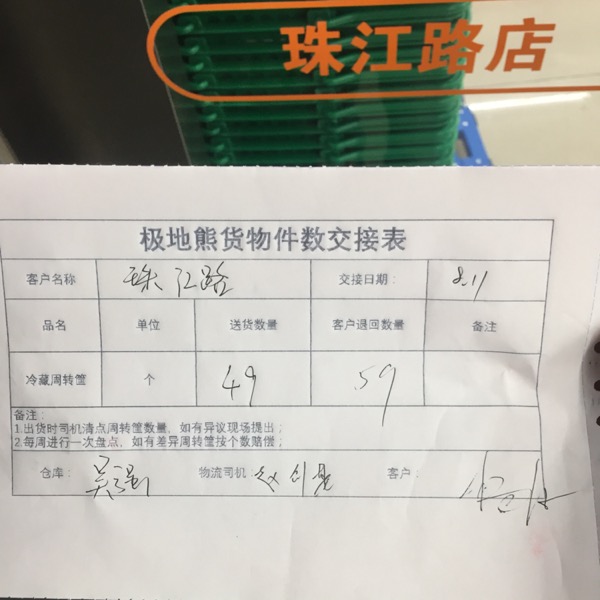 珠江路店
极地熊货物件数交接表
客户名称 珠江路 交接日期： 8.11
品名 单位 送货数量 客户退回数量 备注
冷藏周转筐 个 49 59
备注：
1.出货时司机清点周转筐数量，如有异议现场提出；
2.每周进行一次盘点，如有差异周转筐按个数赔偿；
仓库： 吴强 物流司机： 客户：